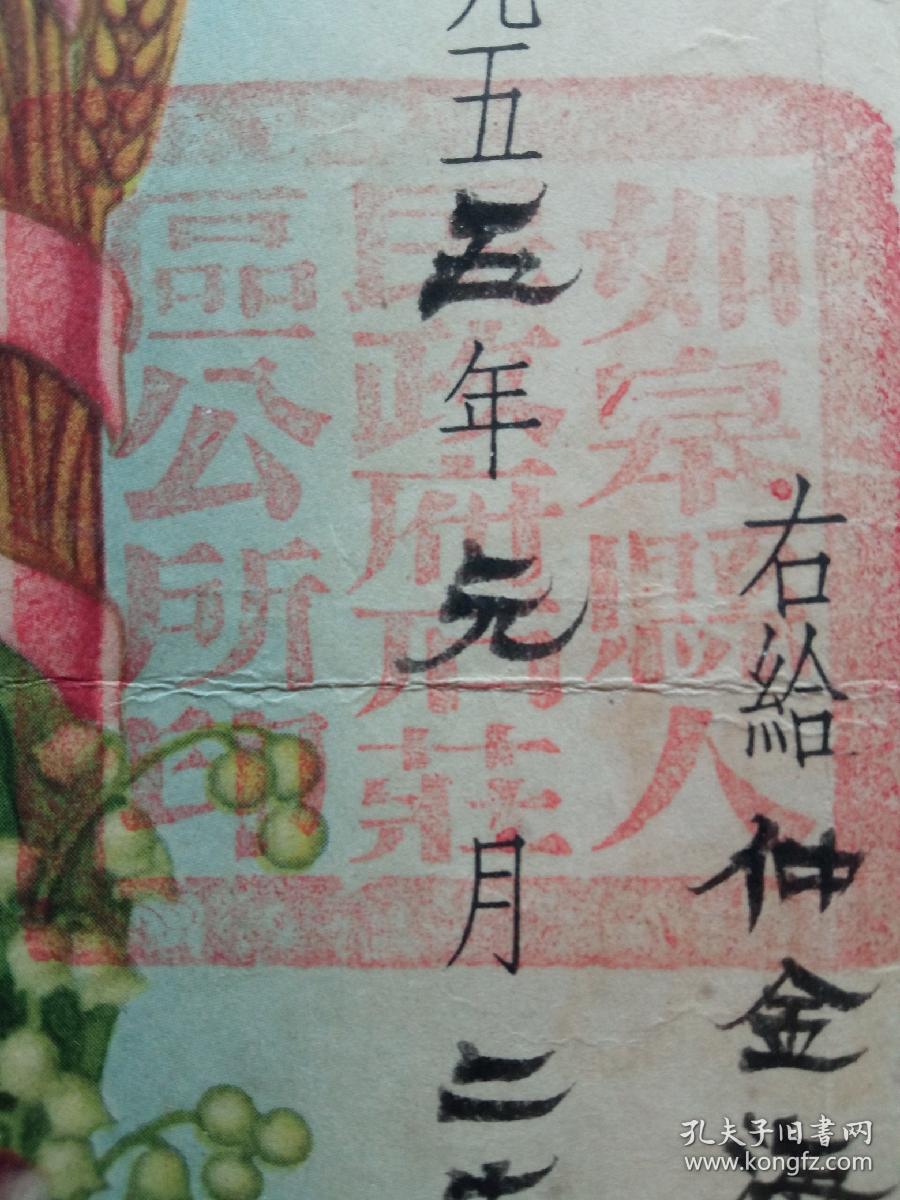 右給仲金
九五五年元月二
如皋縣人
民政府石莊
區公所印
孔夫子旧書网
www.kongfz.com